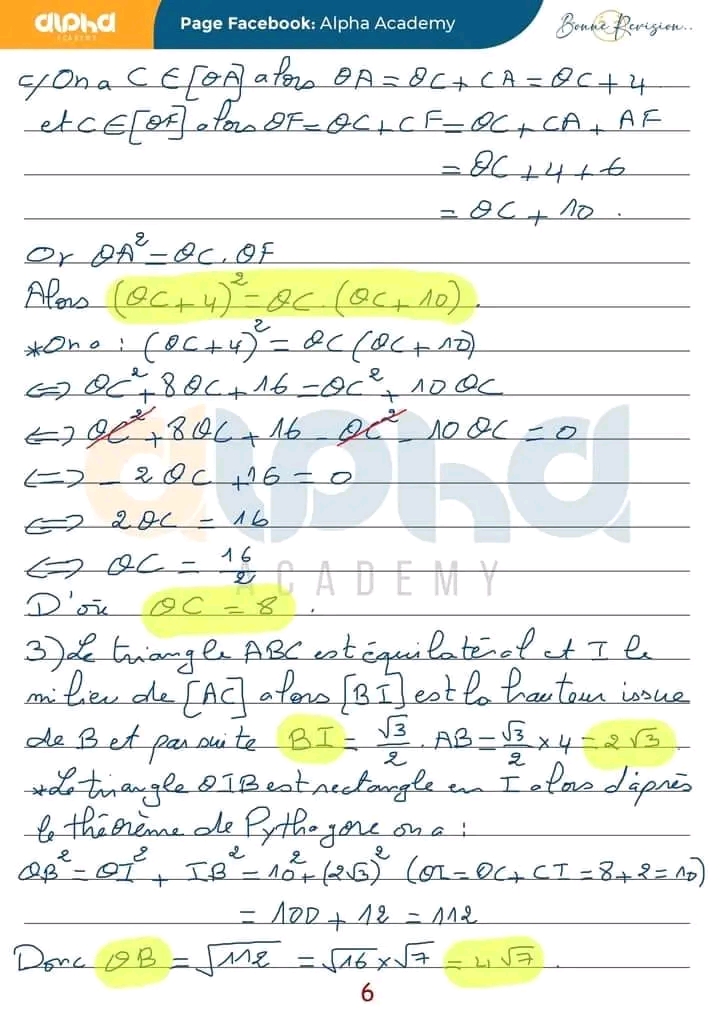 alpha
ACADEMY
Page Facebook: Alpha Academy
Bonne Revision..
c/On a C ∈ [OA] alors OA = OC + CA = OC + 4
et C ∈ [OF] alors OF = OC + CF = OC + CA + AF
= OC + 4 + 6
= OC + 10.
Or OA² = OC . OF
Alors (OC + 4)² = OC . (OC + 10).
*On a : (OC + 4)² = OC (OC + 10)
⇔ OC² + 8OC + 16 = OC² + 10 OC
⇔ OC² + 8OC + 16 - OC² - 10 OC = 0
⇔ - 2 OC + 16 = 0
⇔ 2OC = 16
⇔ OC = 16/2
D'où OC = 8 .
alpha
ACADEMY
3) Le triangle ABC est équilatéral et I le
milieu de [AC] alors [BI] est la hauteur issue
de B et par suite BI = √3/2 . AB = √3/2 × 4 = 2√3
*Le triangle OIB est rectangle en I alors d'après
le théorème de Pythagore on a :
OB² = OI² + IB² = 10² + (2√3)² (OI = OC + CI = 8 + 2 = 10)
= 100 + 12 = 112
Donc OB = √112 = √16 × √7 = 4√7 .
6